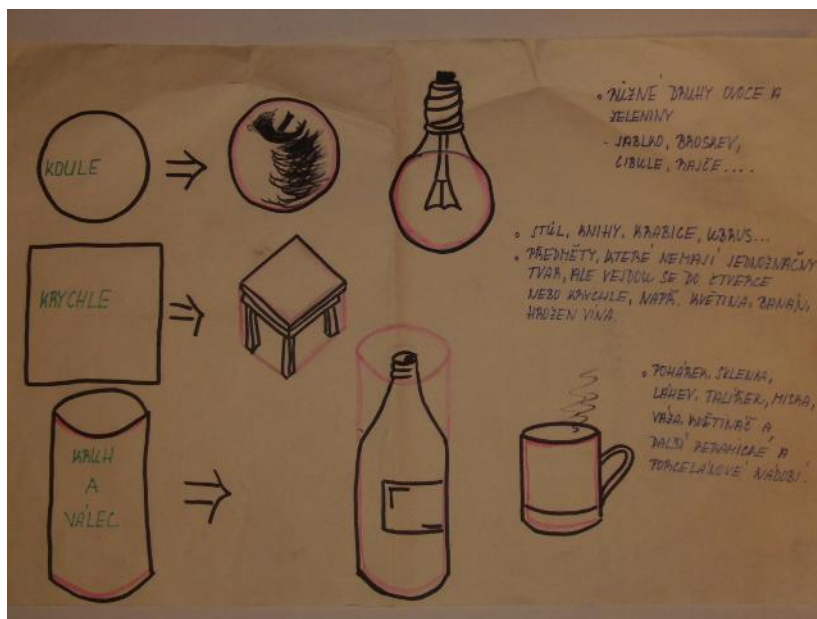 KOULE
• RŮZNÉ DRUHY OVOCE A
ZELENINY
- JABLKO, BROSKEV,
CIBULE, RAJČE....
KRYCHLE
• STŮL, KNIHY, KRABICE, UBRUS...
• PŘEDMĚTY, KTERÉ NEMAJÍ JEDNOZNAČNÝ
TVAR, ALE VEJDOU SE DO ČTVERCE
NEBO KRYCHLE, NAPŘ. KVĚTINA, BANÁN,
HROZEN VÍNA.
KRUH
A
VÁLEC
• POHÁREK, SKLENKA,
LÁHEV, TALÍŘEK, MISKA,
VÁZA, KVĚTINÁČ A
DALŠÍ KERAMICKÉ A
PORCELÁNOVÉ NÁDOBÍ.